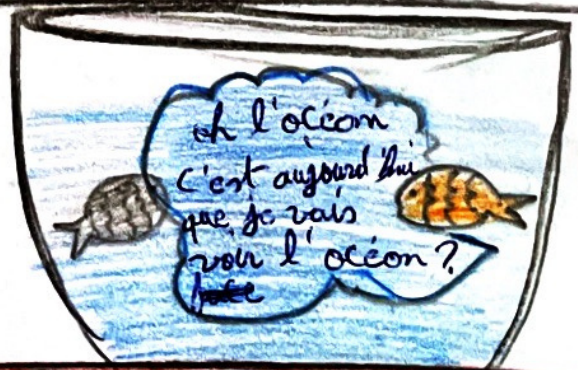 oh l'océon
C'est aujourd'hui
que je vais
voir l'océon ?